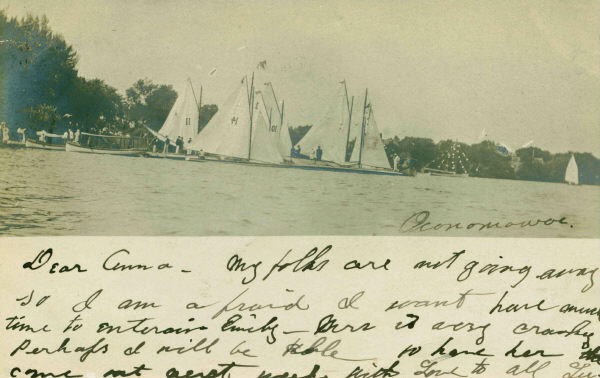 11
14
10
Oconomowoc.
Dear Anna - My folks are not going away
so I am a fraid I want have much
time to entertain Emily - Mrs is very cranky
Perhaps I will be able to have her
come out next week with Love to all